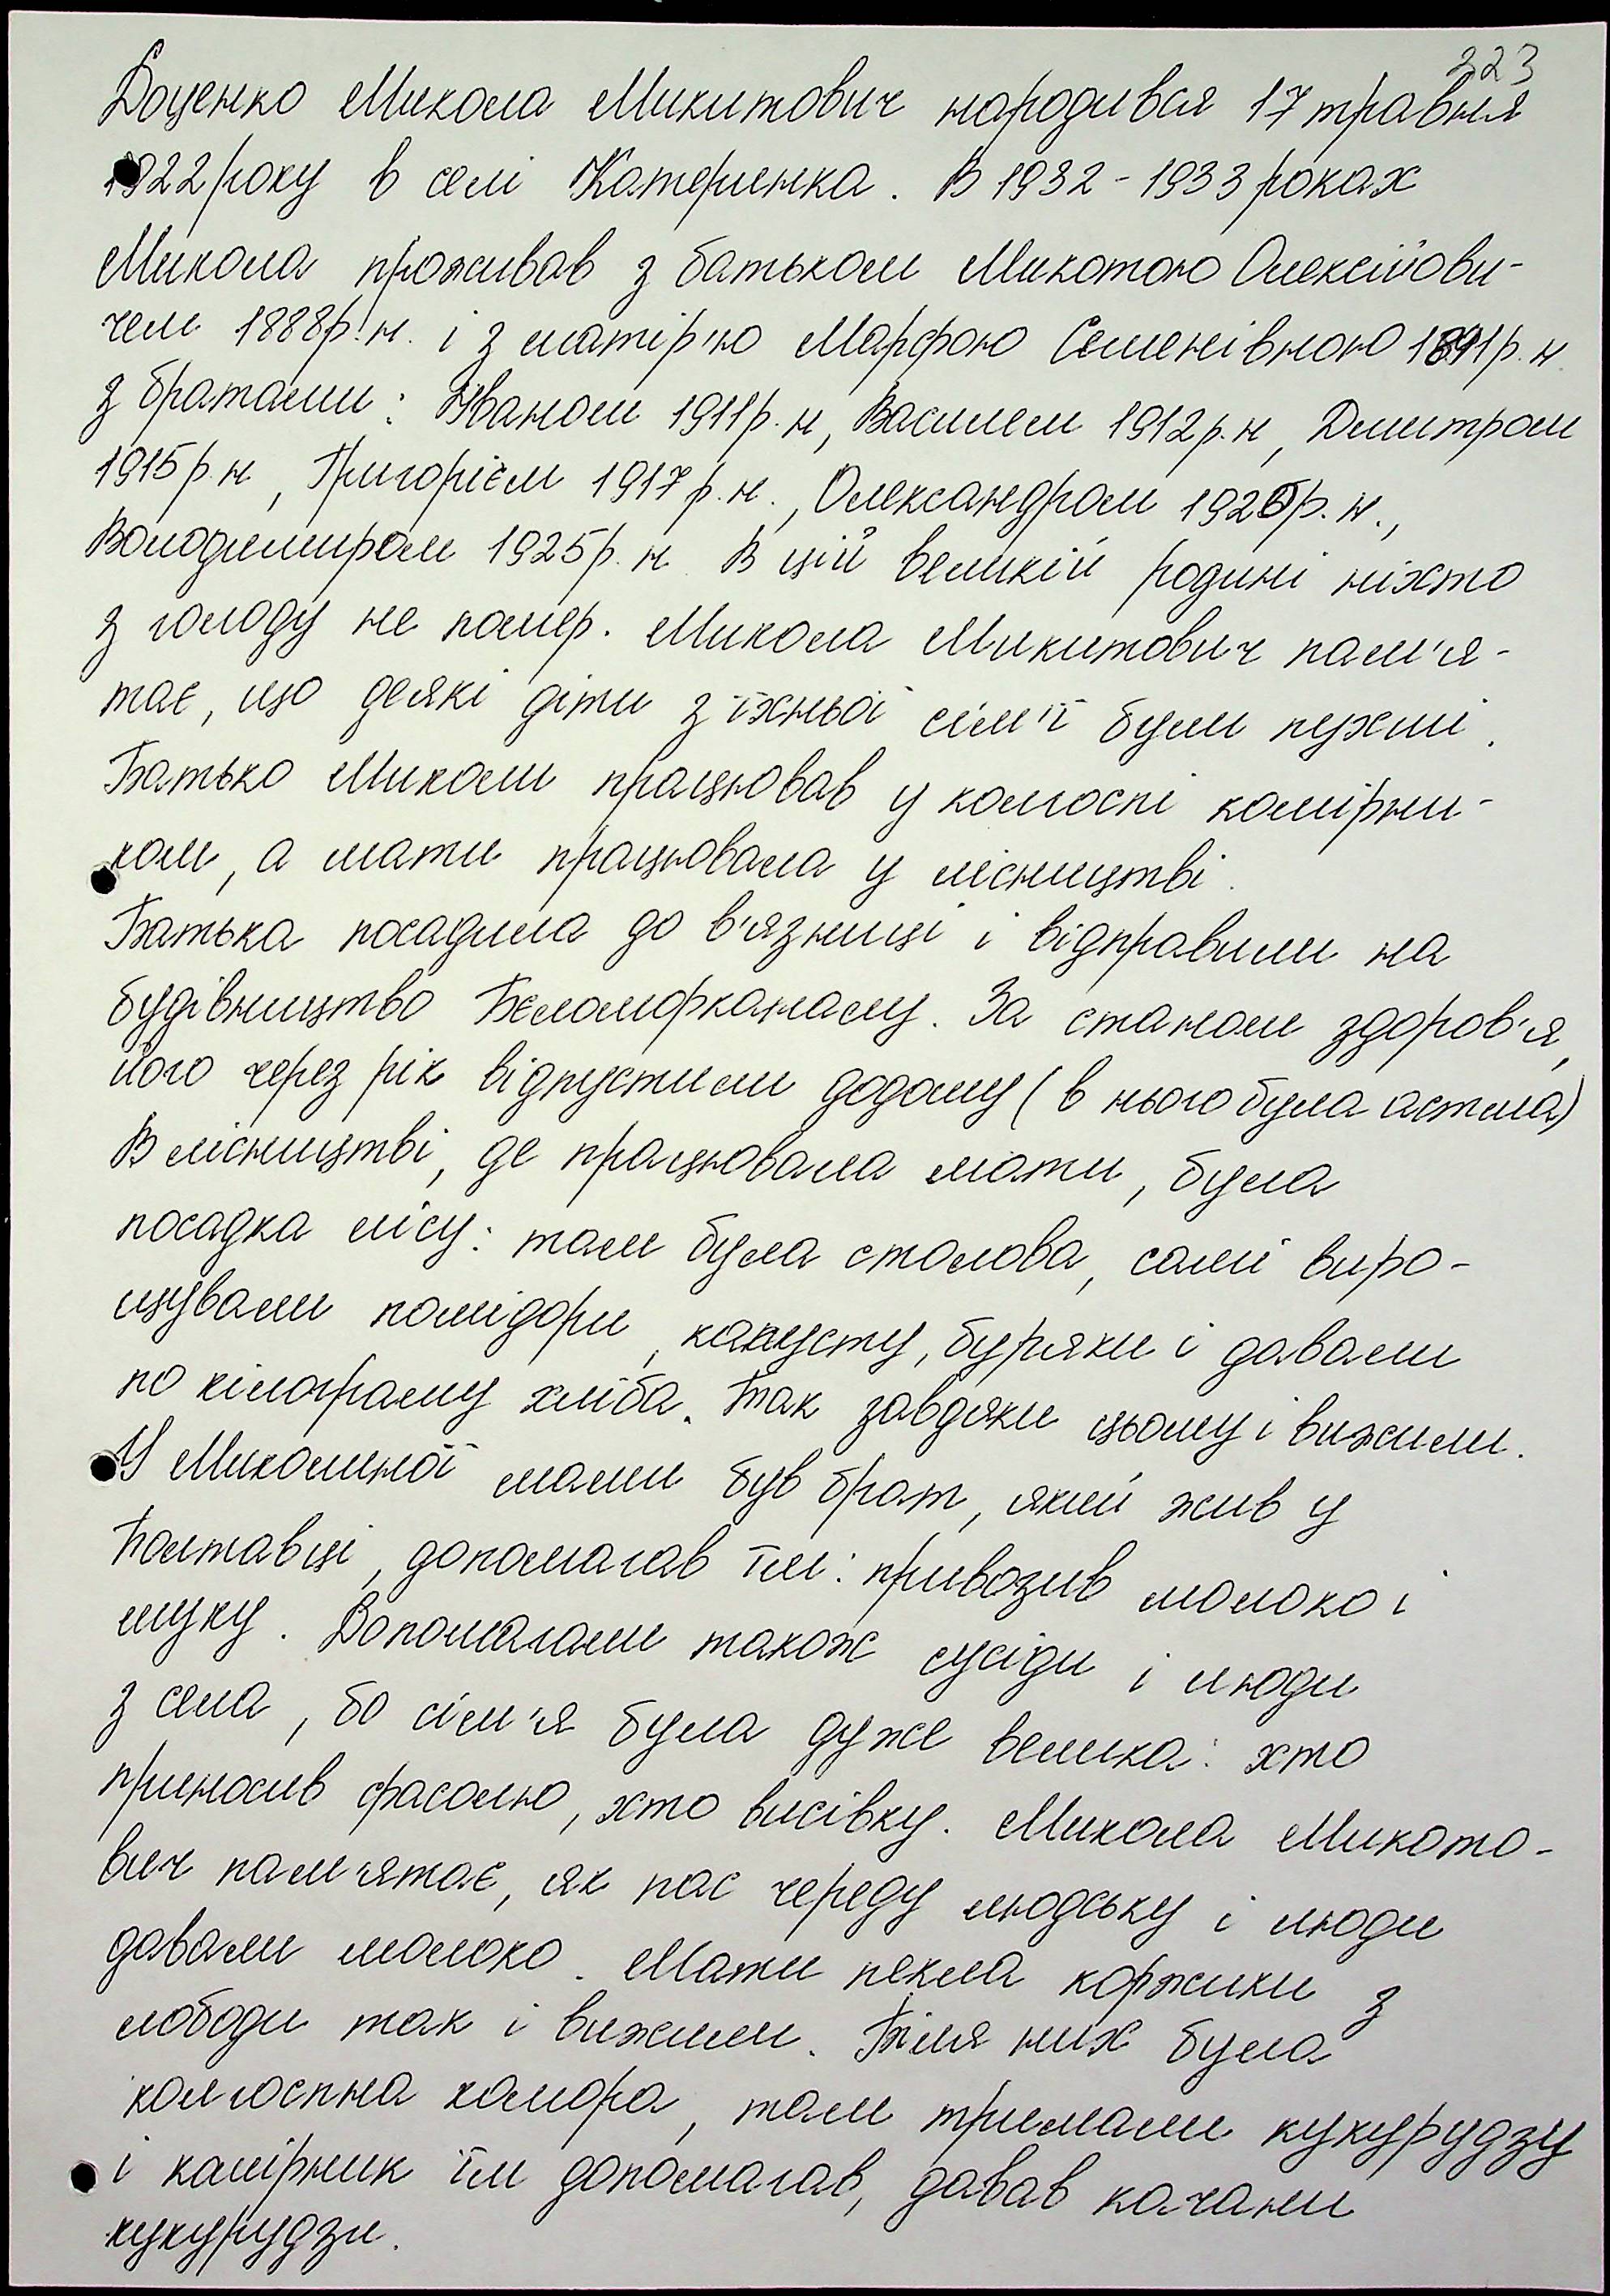 223
Доценко Микола Микитович народився 17 травня
1922 року в селі Катеринка. В 1932-1933 роках
Микола проживав з батьком Микотою Олексійови-
чем 1888р.н. і з матір'ю Марфою Семенівною 1891р.н.
з братами: Іваном 1911р.н, Василем 1912р.н, Дмитром
1915р.н, Григорієм 1917р.н., Олександром 1920р.н.,
Володимиром 1925р.н. В цій великій родині ніхто
з голоду не помер. Микола Микитович пам'я-
тає, що деякі діти з їхньої сім'ї були пухлі.
Батько Миколи працював у колгоспі комірни-
ком, а мати працювала у лісництві.
Батька посадила до в'язниці і відправили на
будівництво Бєломорканалу. За станом здоров'я,
його через рік відпустили додому (в нього була астма)
В лісництві, де працювала мати, була
посадка лісу: там була столова, самі виро-
щували помідори, капусту, буряки і давали
по кілограму хліба. Так завдяки цьому і вижили.
У Миколиної мами був брат, який жив у
Полтавці, допомагав їм: привозив молоко і
муку. Допомагали також сусіди і люди
з села, бо сім'я була дуже велика: хто
приносив фасолю, хто висівку. Микола Микото-
вич пам'ятає, як пас череду людську і люди
давали молоко. Мати пекла коржики з
лободи так і вижили. Біля них була
колгоспна комора, там тримали кукурудзу
і камірник їм допомагав, давав качани
кукурудзи.